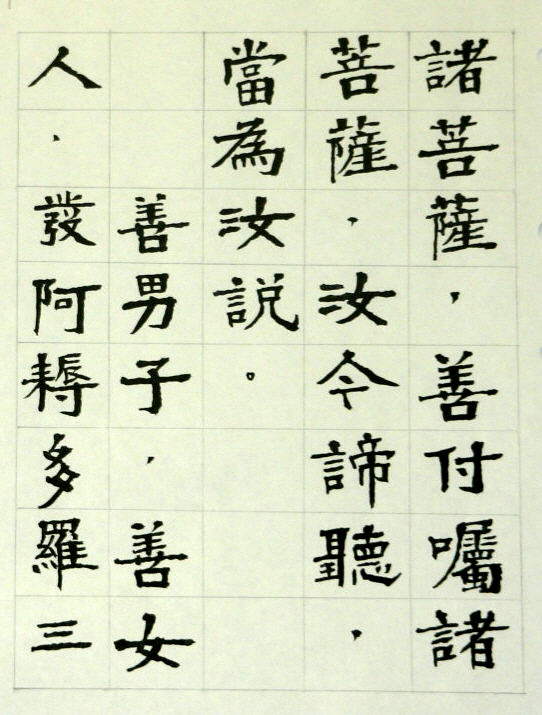 諸菩薩，善付囑諸
菩薩，汝今諦聽，
當為汝説。
善男子，善女
人，發阿耨多羅三